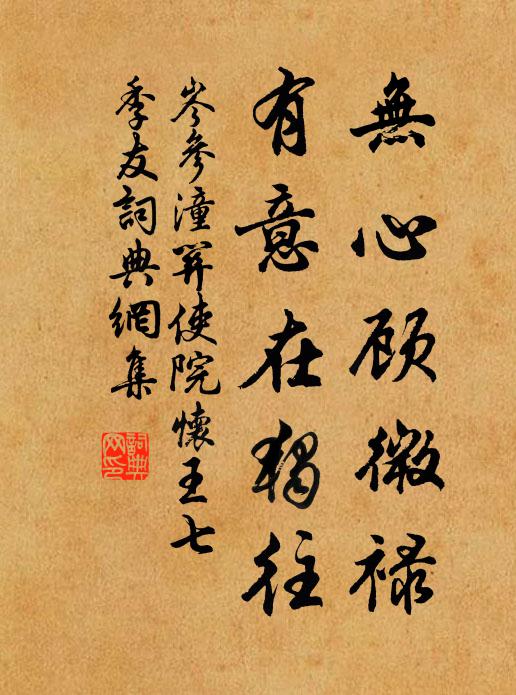 無心顧微祿
有意在獨往
岑參潼關使院懷王七
季友詞典網集
詞典
网印